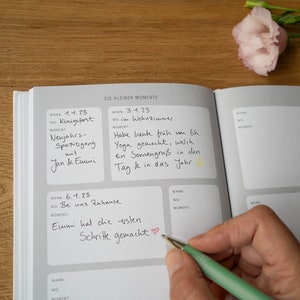 DIE KLEINEN MOMENTE
WANN: 1.1.23
WO: Königsforst
MOMENT:
Neujahrs-
spaziergang
mit
Jan & Emmi
WANN: 3.1.23
WO: im Wohnzimmer
MOMENT:
Habe heute früh um 6h
Yoga gemacht, welch
ein Sonnengruß in den
Tag & in das Jahr
WANN: 6.1.23
WO: Bei uns Zuhause
MOMENT:
Emmi hat die ersten
Schritte gemacht
WANN:
WO:
MOMENT:
WANN:
WO:
MOMENT:
WANN:
WO:
MOMENT:
WANN:
WO:
MOMENT: